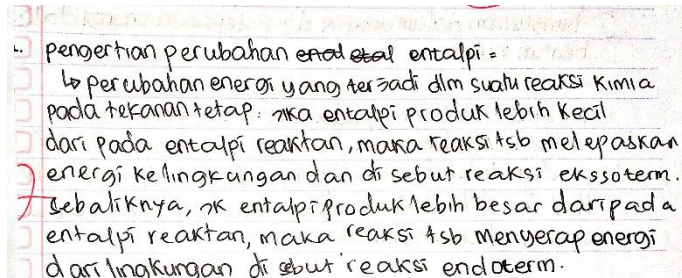 pengertian perubahan entalpi =
↳ perubahan energi yang terjadi dlm suatu reaksi kimia
pada tekanan tetap. Jika entalpi produk lebih kecil
dari pada entalpi reaktan, maka reaksi tsb melepaskan
energi kelingkungan dan di sebut reaksi ekssoterm.
Sebaliknya, jk entalpi produk lebih besar daripada
entalpi reaktan, maka reaksi tsb menyerap energi
dari lingkungan di sebut reaksi endoterm.